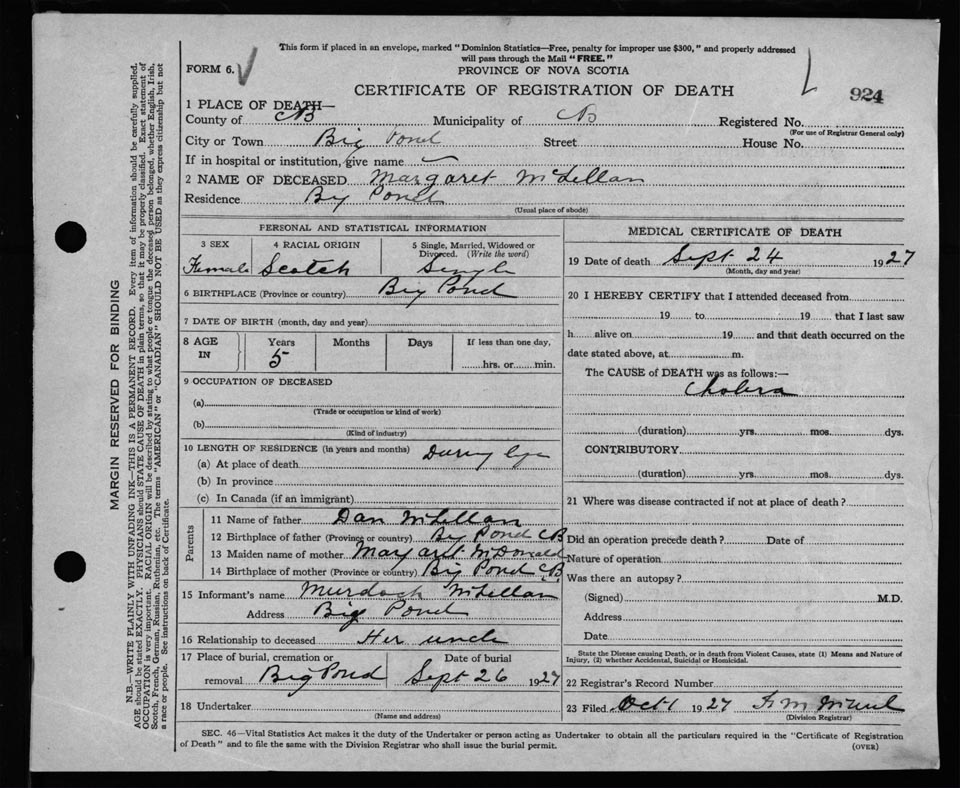 This form if placed in an envelope, marked "Dominion Statistics—Free, penalty for improper use $300," and properly addressed
will pass through the Mail "FREE."
FORM 6.
PROVINCE OF NOVA SCOTIA
924
CERTIFICATE OF REGISTRATION OF DEATH
1 PLACE OF DEATH—
County of CB Municipality of CB Registered No.
(For use of Registrar General only)
City or Town Big Pond Street House No.
If in hospital or institution, give name
2 NAME OF DECEASED Margaret McLellan
Residence Big Pond
(Usual place of abode)
PERSONAL AND STATISTICAL INFORMATION
3 SEX 4 RACIAL ORIGIN 5 Single, Married, Widowed or
Divorced. (Write the word)
Female Scotch Single
6 BIRTHPLACE (Province or country) Big Pond
7 DATE OF BIRTH (month, day and year)
8 AGE IN Years Months Days If less than one day,
5 hrs. or min.
9 OCCUPATION OF DECEASED
(a)
(Trade or occupation or kind of work)
(b)
(Kind of industry)
10 LENGTH OF RESIDENCE (in years and months) During life
(a) At place of death
(b) In province
(c) In Canada (if an immigrant)
Parents
11 Name of father Dan McLellan
12 Birthplace of father (Province or country) Big Pond CB
13 Maiden name of mother Margaret McDonald
14 Birthplace of mother (Province or country) Big Pond CB
15 Informant's name Murdoch McLellan
Address Big Pond
16 Relationship to deceased Her uncle
17 Place of burial, cremation or Date of burial
removal Big Pond Sept 26 1927
18 Undertaker
(Name and address)
MEDICAL CERTIFICATE OF DEATH
19 Date of death Sept 24 1927
(Month, day and year)
20 I HEREBY CERTIFY that I attended deceased from
19 to 19 that I last saw
h alive on 19 and that death occurred on the
date stated above, at m.
The CAUSE of DEATH was as follows:—
Cholera
(duration) yrs. mos. dys.
CONTRIBUTORY
(duration) yrs. mos. dys.
21 Where was disease contracted if not at place of death?
Did an operation precede death? Date of
Nature of operation
Was there an autopsy?
(Signed) M.D.
Address
Date
State the Disease causing Death, or in death from Violent Causes, state (1) Means and Nature of
Injury, (2) whether Accidental, Suicidal or Homicidal.
22 Registrar's Record Number
23 Filed Oct 1 1927
(Division Registrar)
SEC. 46—Vital Statistics Act makes it the duty of the Undertaker or person acting as Undertaker to obtain all the particulars required in the "Certificate of Registration
of Death" and to file the same with the Division Registrar who shall issue the burial permit.
(OVER)
MARGIN RESERVED FOR BINDING
N.B.—WRITE PLAINLY WITH UNFADING INK—THIS IS A PERMANENT RECORD. Every item of information should be carefully supplied.
AGE should be stated EXACTLY. PHYSICIANS should STATE CAUSE OF DEATH in plain terms, so that it may be properly classified. Exact statement of
OCCUPATION is very important. RACIAL ORIGIN will be described by stating to what people or tongue the deceased person belonged, whether English, Irish,
Scotch, French, German, Russian, Ruthenian, etc. The terms "AMERICAN" or "CANADIAN" SHOULD NOT BE USED as they express citizenship but not
a race or people. See instructions on back of Certificate.